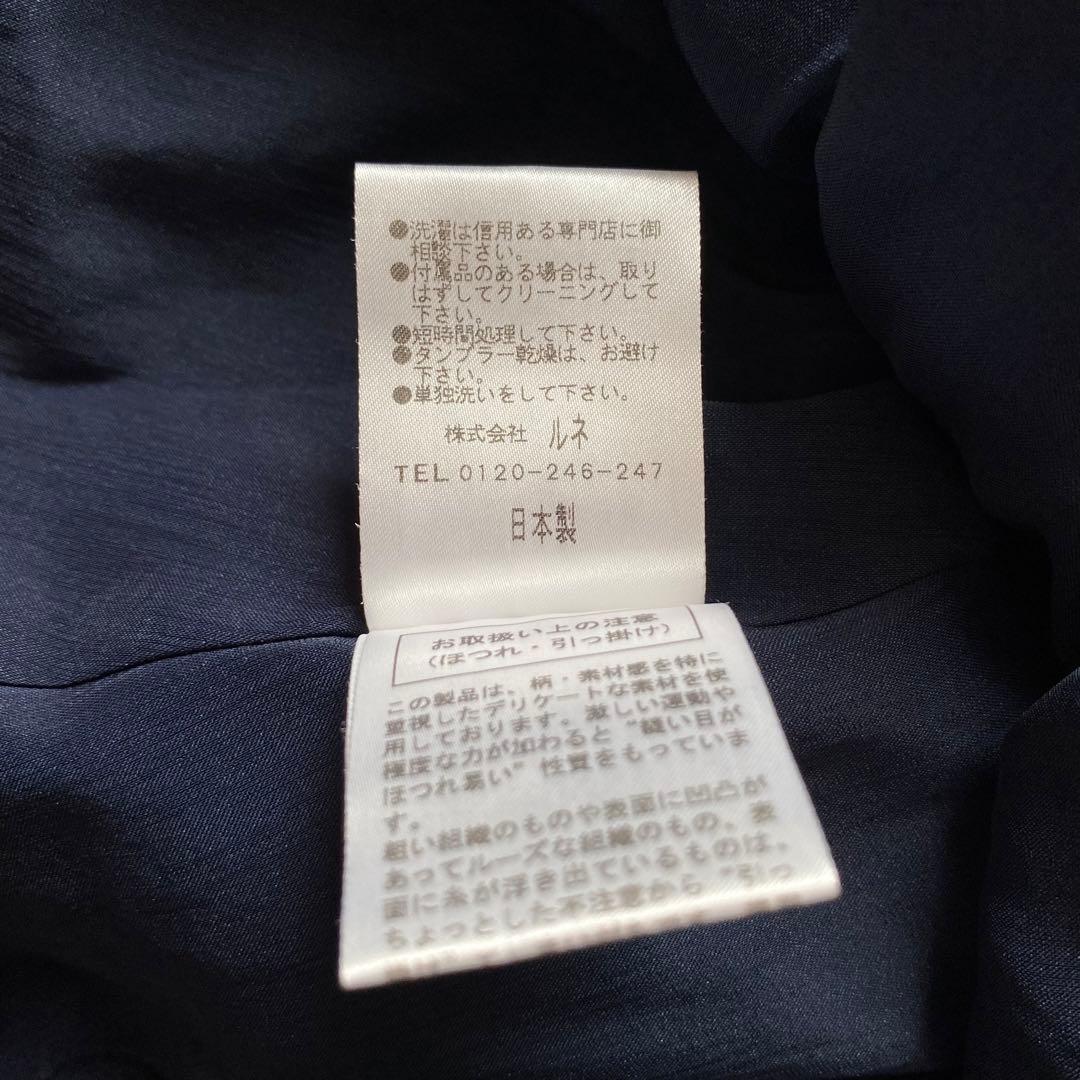 ●洗濯は信用ある専門店に御
相談下さい。
●付属品のある場合は、取り
はずしてクリーニングして
下さい。
●短時間処理して下さい。
●タンブラー乾燥は、お避け
下さい。
●単独洗いをして下さい。
株式会社 ルネ
TEL 0120-246-247
日本製
お取扱い上の注意
(ほつれ・引っ掛け)
この製品は、柄・素材感を特に
重視したデリケートな素材を使
用しております。激しい運動や
極度な力が加わると"縫い目が
ほつれ易い"性質をもっていま
す。
粗い組織のものや表面に凹凸が
あってルーズな組織のもの、表
面に糸が浮き出ているものは、
ちょっとした不注意から"引っ